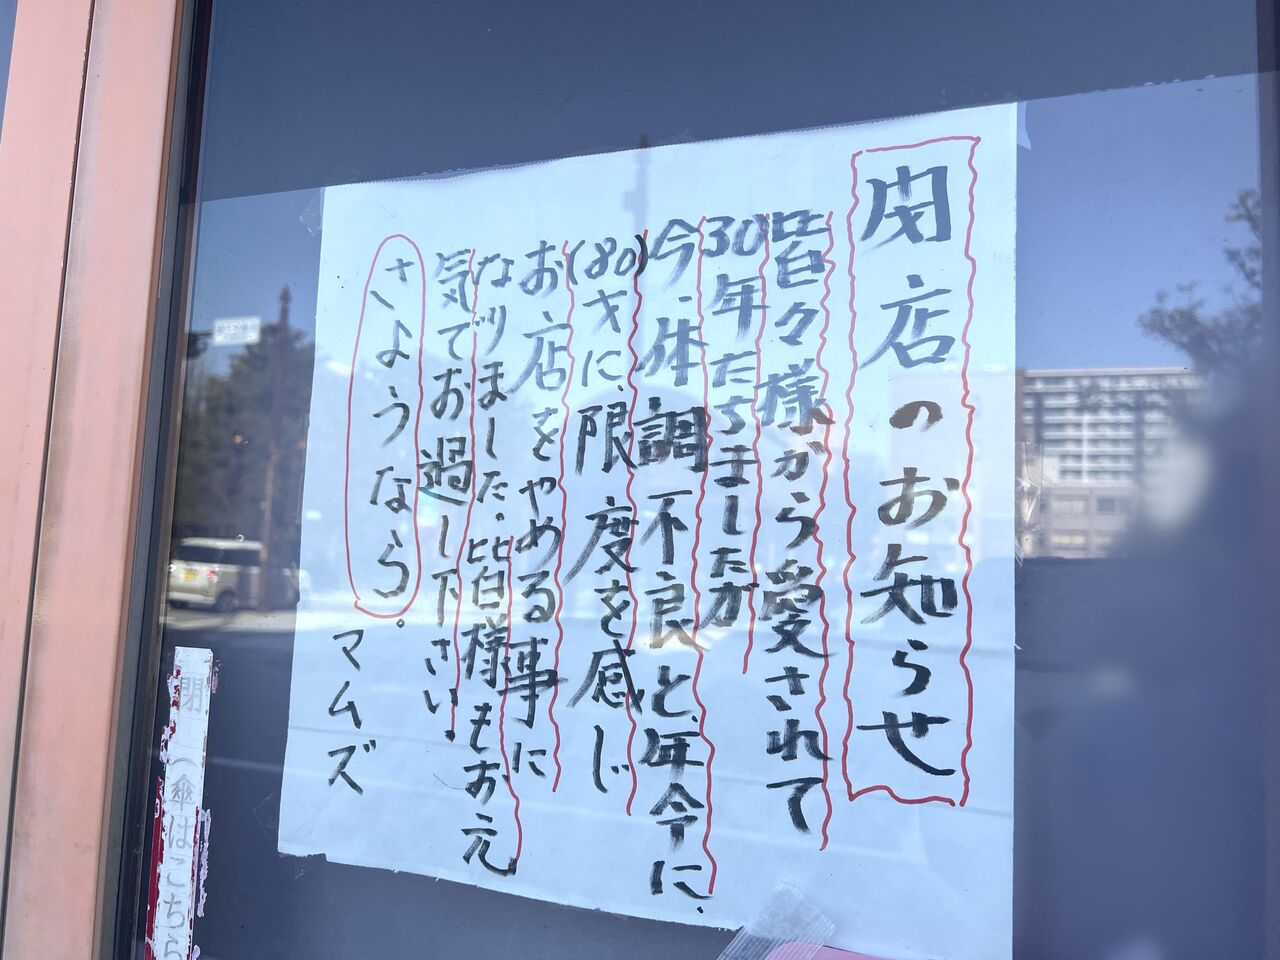 閉店のお知らせ
皆々様から愛されて
30年たちましたが
今、体調不良と、年令に、
(80)才に、限度を感じ
お店をやめる事に
なりました。皆様もお元
気でお過し下さい。
さようなら。
マムズ
傘はこちら